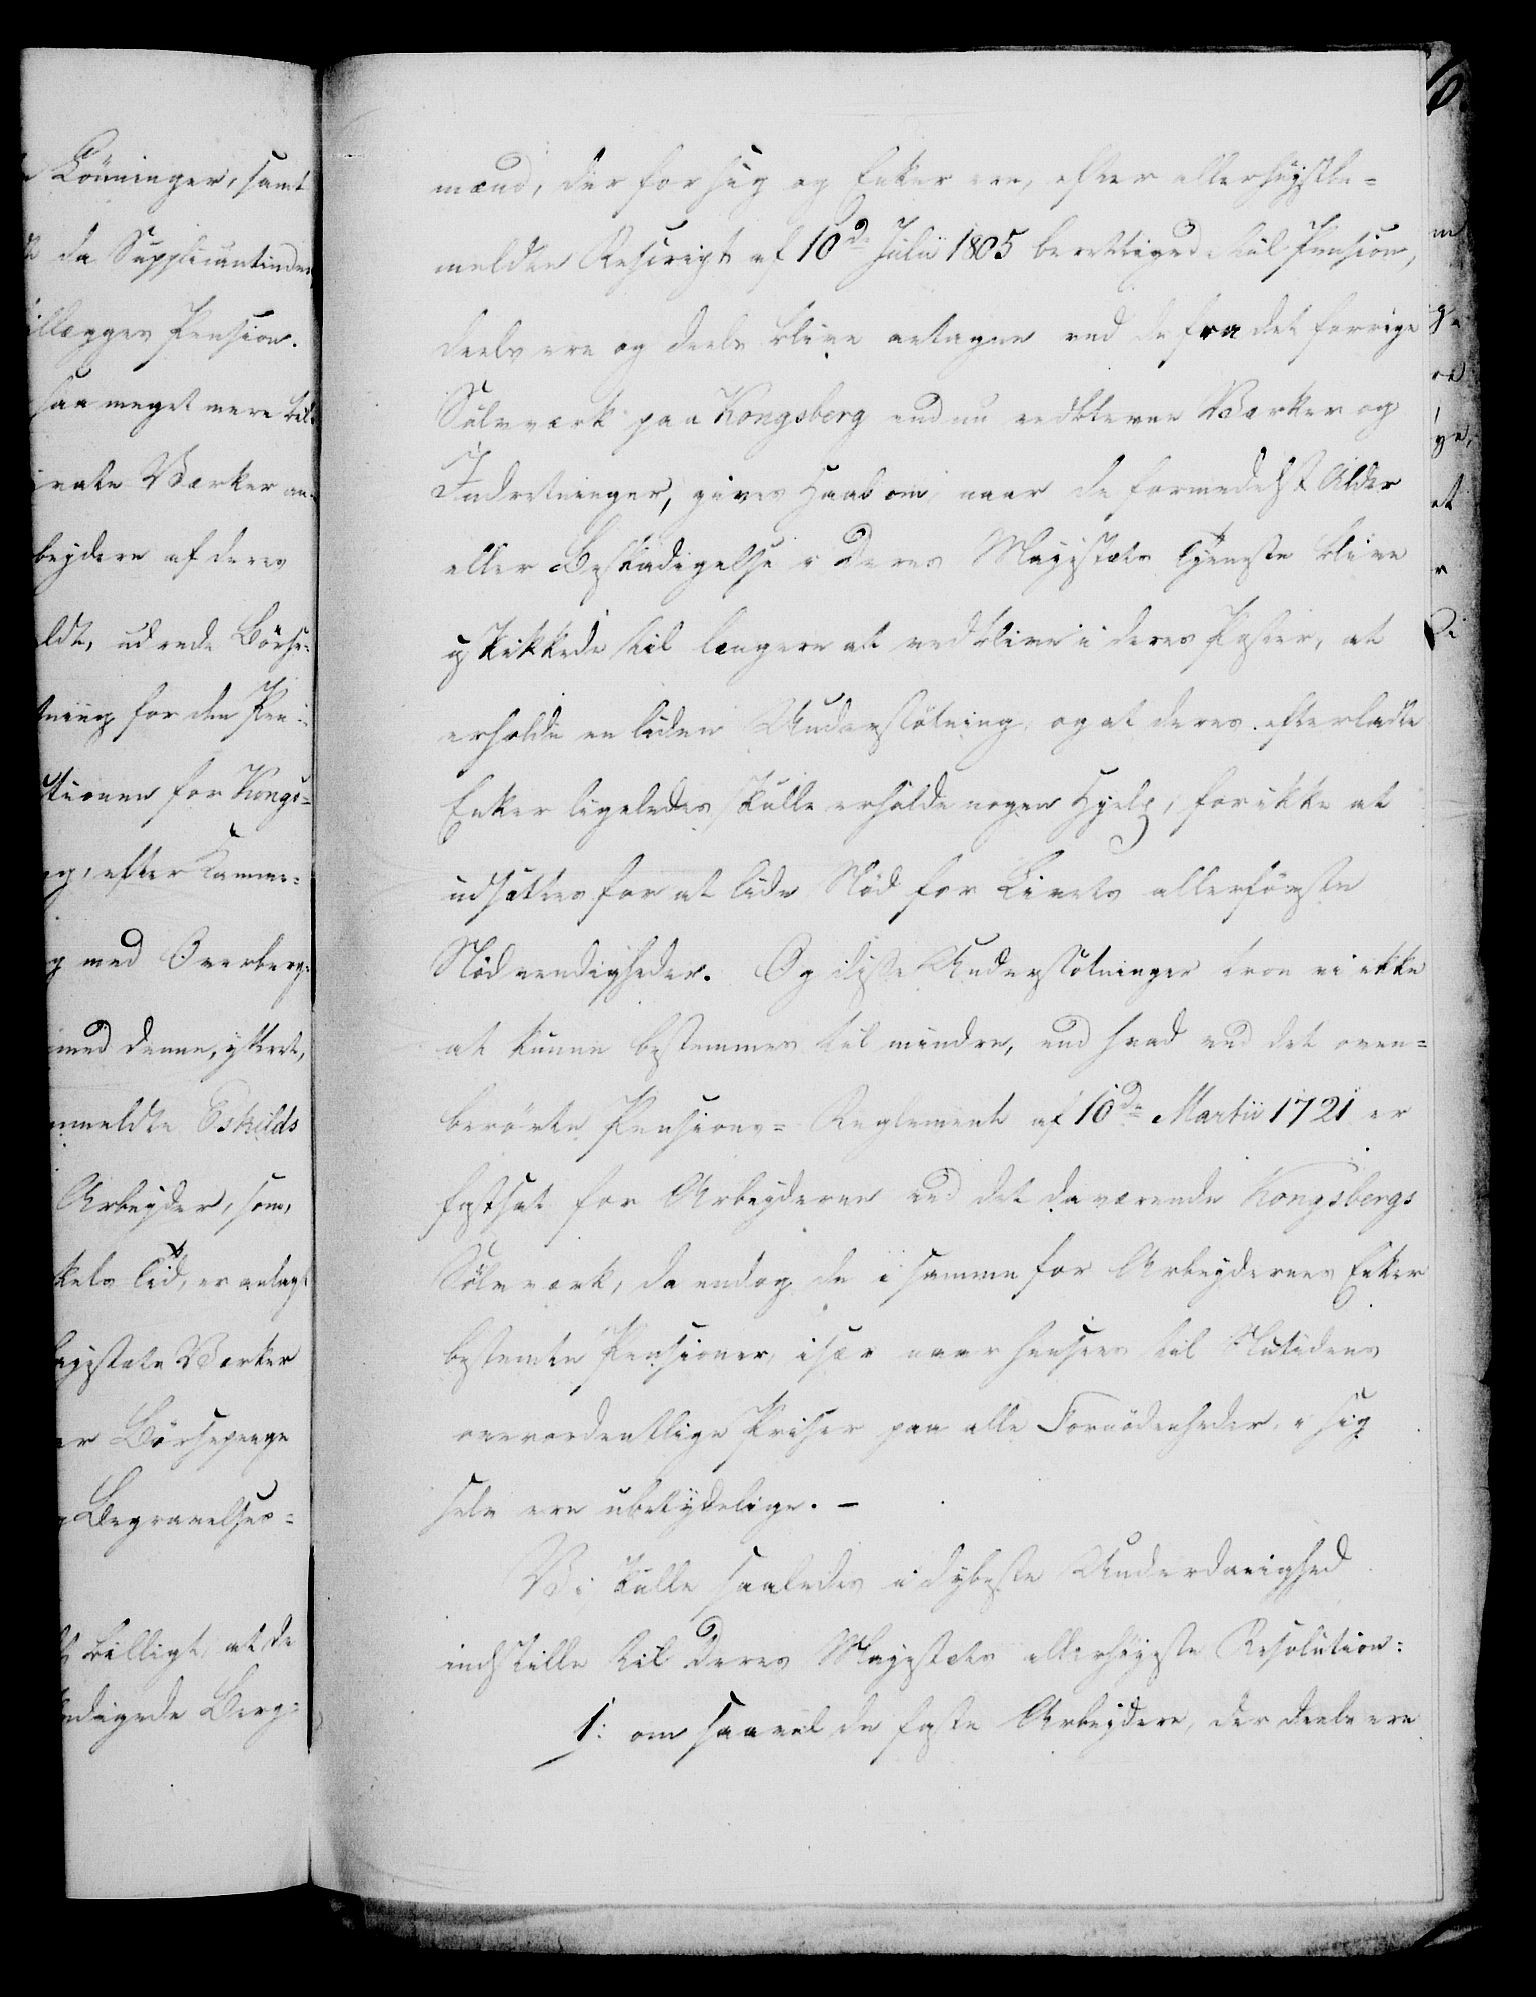 Lönninger, samt
da Supplicantinden
illægges Pension.
saa meget mere til-
ivate Værker an-
beydere af deres
ldt, udrede Börse-
tning for den Pen-
tionen for Kongs-
og, efter Kamme-
og med Overberg-
med denne, yttret,
nmeldte Eskilds
Arbeyder, som,
kels Tid, er antagt
ajestæts Værker
er Börsepenge
Begravelses-
billigt, at de
ndigede Berg-
mænd, der for sig og Enker ere, efter allerhöystbe-
meldte Rescript af 10de Julii 1805 berettigede til Pension,
deels ere og deels blive antagne ved de fra det forrige
Sölvværk paa Kongsberg endnu vedblevne Værker og
Indretninger, gives Haab om, naar de formedelst Alder
eller Beskadigelse i Deres Majestæts Tjeneste blive
uskikkede til længere at vedblive i deres Poster, at
erholde en liden Understötning, og at deres efterladte
Enker ligeledes skulle erholde nogen Hjelp, for ikke at
udsættes for at lide Nöd for Livets allerförste
Nödvendigheder. Og disse Understötninger troe vi ikke
at kunne bestemmes til mindre, end hvad ved det oven-
berörte Pensions-Reglement af 10de Martii 1721 er
fastsat for Arbeyderne ved det daværende Kongsbergs
Sölvværk, da endog de i samme for Arbeydernes Enker
bestemte Pensioner, især naar hensees til Nutidens
overordentlige Priser paa alle Fornödenheder, i sig
selv ere ubetydelige. -
Vi skulle saaledes i dybeste Underdanighed
indstille til Deres Majestæts allerhöyeste Resolution:
1: om saavel de faste Arbeydere, der deels ere